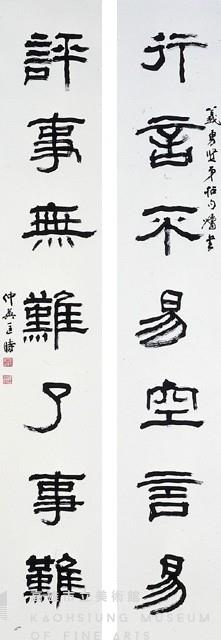 行言不易空言易
義男賢弟拈句囑書
評事無難了事難
高雄市立美術館
KAOHSIUNG MUSEUM
OF FINE ARTS